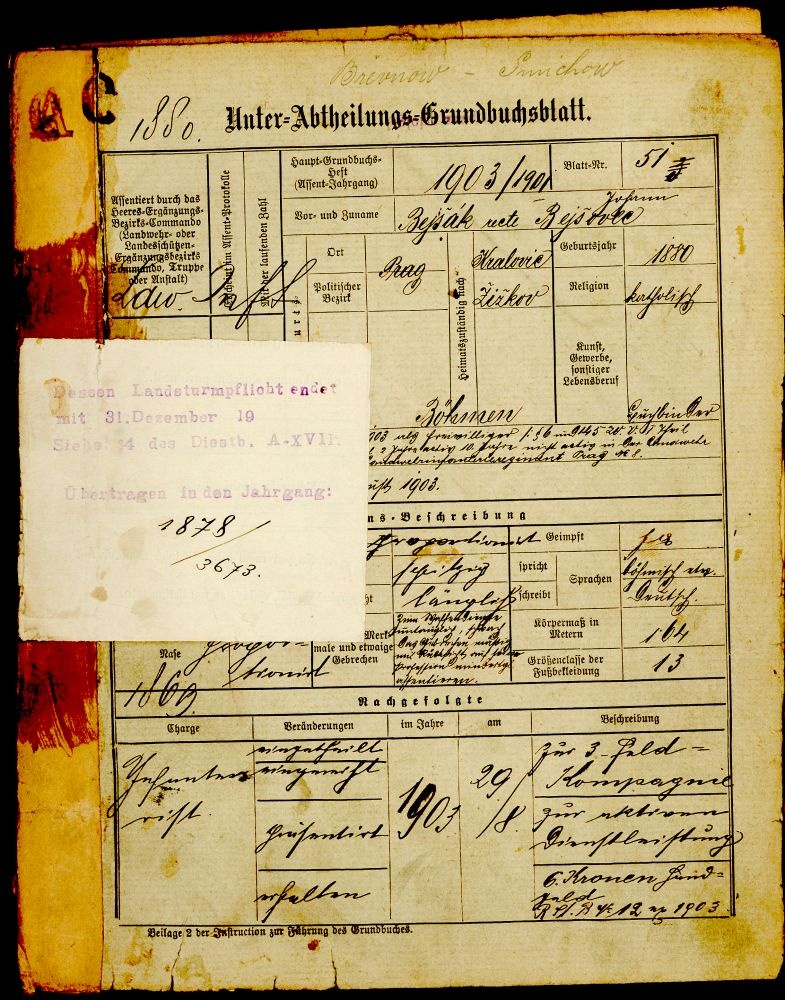 Břevnow - Smichow
1880.
Unter-Abtheilungs-Grundbuchsblatt.
Assentiert durch das
Heeres-Ergänzungs-
Bezirks-Commando
(Landwehr- oder
Landesschützen-
Ergänzungsbezirks
Commando, Truppe
oder Anstalt)
Ldw.
im Assent-Protokolle
Mit der laufenden Zahl
Haupt-Grundbuchs-
Heft
(Assent-Jahrgang)
1903/1901
Blatt-Nr.
51
Vor- und Zuname
Johann
Bejšák recte Bejšovec
Ort
Prag
Politischer
Bezirk
Heimatszuständig nach
Kralovic
Žižkov
Böhmen
Geburtsjahr
1880
Religion
katholisch
Kunst,
Gewerbe,
sonstiger
Lebensberuf
Dessen Landsturmpflicht endet
mit 31.Dezember 19
Siehe §4 des Dienstb. A-XVII.
Übertragen in den Jahrgang:
1878/
3673.
903 als Freiwilliger
2 Jahre activ 10 Jahre nicht activ in der Landwehr
Landwehrinfanterieregiment Prag № 8.
1903.
ns-Beschreibung
proportionirt
Geimpft
ja
spitzig
spricht
schreibt
Sprachen
böhmisch etw.
Deutsch.
länglich
Merk-
male und etwaige
Gebrechen
Zum Waffendienste
assentieren.
Körpermaß in
Metern
164
Größenclasse der
Fußbekleidung
13
Nase
propor-
tionirt
1869.
Nachgefolgte
Charge
Veränderungen
im Jahre
am
Beschreibung
Infanter
rist.
eingetheilt
eingereiht
präsentirt
erhalten
1903
29/
/8.
zur 3. Feld=
Kompagnie
zur aktiven
Dienstleistung
6 Kronen Hand=
geld
№ 12 ex 1903.
Beilage 2 der Instruction zur Führung des Grundbuches.